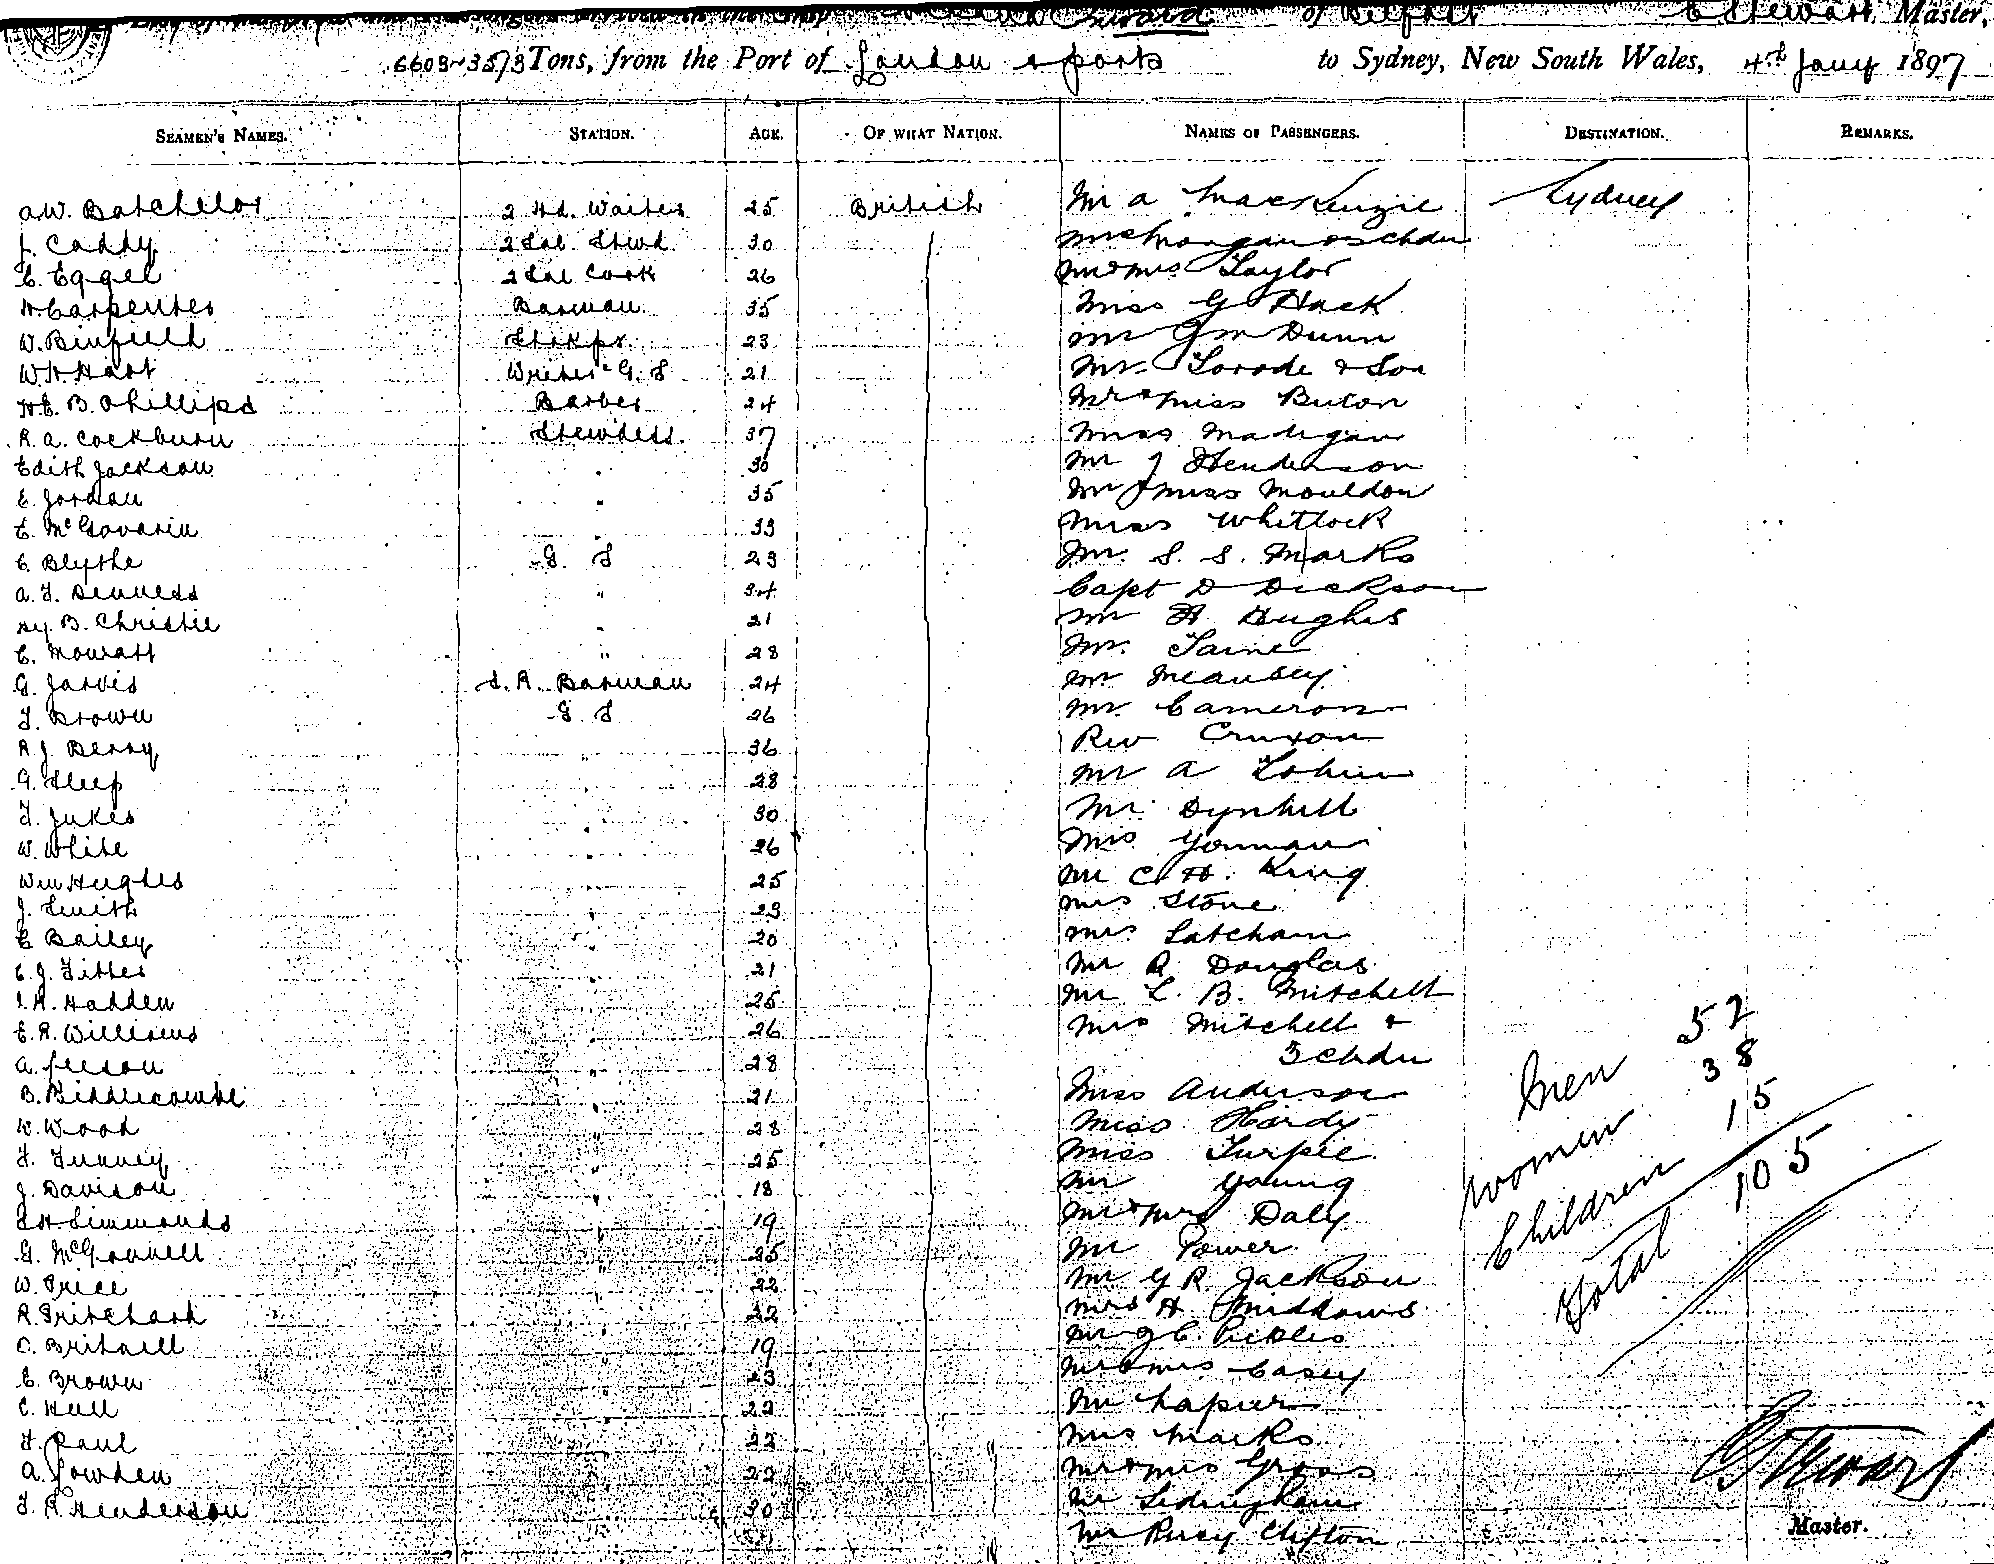 of Belfast C Stewart, Master,
6603~3573 Tons, from the Port of London & ports to Sydney, New South Wales, 4th Jany 1897
SEAMEN'S NAMES. STATION. AGE. OF WHAT NATION. NAMES OF PASSENGERS. DESTINATION. REMARKS.
A.W. Batchelor 2 Hd. Waiter 25 British Mr A MacKenzie Sydney
J. Caddy 2 Sal. Stwd. 30
E. Eggel 2 Sal Cook 26 Mr & Mrs Taylor
H Carpenter Barman 35 Miss G Hack
W. Binfield 23 Mr G M Dunn
W.H. Hart Writer G.S 21 Mr & Son
H.E. B. Phillips Barber 24 Mr & Miss Buton
R. A. Cockburn Stewdess. 37 Miss Madigan
Edith Jackson " 30 Mr J Henderson
E. Jordan " 35 Mr & Miss Mouldon
E. McGovarin " 33 Miss Whitlock
E. Blythe G. S 23 Mr. S. S. Marks
A. F. Denness " 34 Capt D Dickson
Hy. B. Christie " 21 Mr H Hughes
C. Mowatt " 28 Mr.
G. Jarvis S. R. Barman 24 Mr
F. Brown G. S 26 Mr. Cameron
R J. Berry 36 Rev Cruxon
G. Sleep " 28 Mr A
F. Jukes " 30 Mr. Dynhill
W. White " 26 Mrs Yonman
Wm Hughes " 25 Mr C. H. King
J. Smith " 23 Mrs Stone
E Bailey " 20 Mrs Latcham
E. J. Fitter " 21 Mr R Douglas
I. R. Hadden " 25 Mr L. B. Mitchell
E. R. Williams " 26 Mrs Mitchell &
A. " 28 3 chdn
B. Biddlecombe " 21 Miss Anderson
W. Wood " 28 Miss Hardy
F. Tunney " 25 Miss Turpie
J. Davison " 18 Mr Young
Simmonds " 19 Mr & Mrs Daly
G. " 25 Mr Power
W. Price " 22 Mr G R Jackson
R. Pritchard " 22 Mrs H Middows
C. Britnell " 19 Mr J C. Pickles
E. Brown 23 Mr & Mrs Casey
C. Hull 22 Mr Napier
H. Paul 22 Mrs Marks
A. Lowden 22 Mr & Mrs Gross
F. R. Henderson 30 Mr Ledingham
Mr Percy Clifton
Men 52
Women 38
Children 15
Total 105
C Stewart
Master.